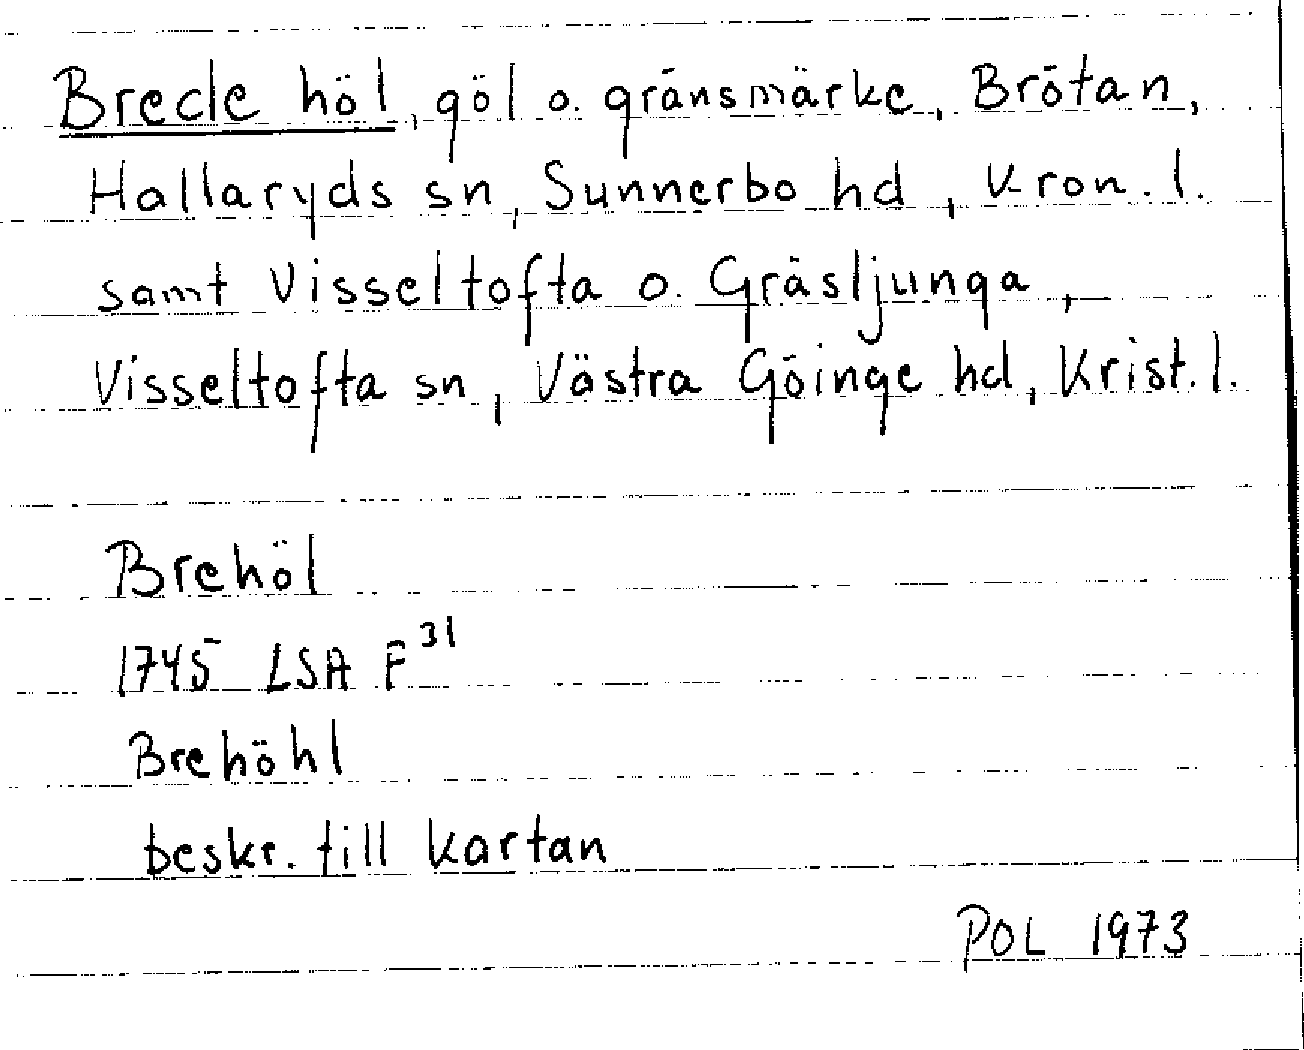 Brede höl, göl o. gränsmärke, Brötan,
Hallaryds sn, Sunnerbo hd, Kron. l.
samt Visseltofta o. Gräsljunga,
Visseltofta sn, Västra Göinge hd, Krist. l.
Brehöl
1745 LSA F³¹
Brehöhl
beskr. till kartan
POL 1973